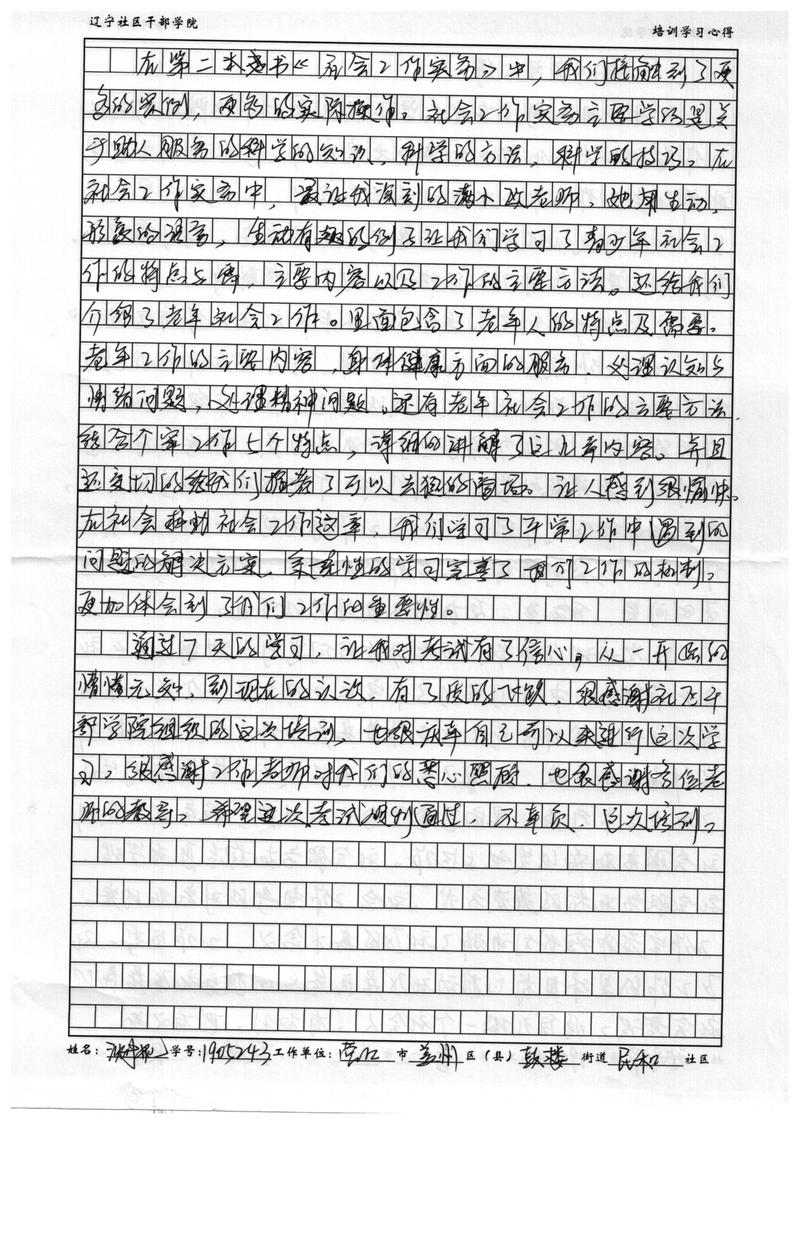 辽宁社区干部学院
培训学习心得
在第二本《社会工作实务》中，我们接触到了更
多的实例，更多的实际操作。社会工作实务主要学的是关
于助人服务的科学的知识、科学的方法、科学的技巧。在
社会工作实务中，最让我深刻的老师，她用生动、
形象的语言，生动有趣的例子让我们学习了青少年社会工
作的特点与，主要内容以及工作的主要方法。还给我们
介绍了老年社会工作。里面包含了老年人的特点及需要。
老年工作的主要内容，身体健康方面的服务、处理认知与
情绪问题，处理精神问题。还有老年社会工作的主要方法
结合个案工作5个特点，详细的讲解了这几章内容。并且
还亲切的给我们推荐了可以的。让人感到很愉快。
在社会救助社会工作这章，我们学习了平常工作中遇到的
问题的解决方案，系统性的学习完善了我们工作的机制。
更加体会到了我们工作的重要性。
通过7天的学习，让我对考试有了信心，从一开始的
懵懂无知，到现在的认识，有了质的飞跃，很感谢社区干
部学院组织的这次培训，也很庆幸自己可以来进行这次学
习，很感谢工作老师对我们的悉心照顾，也很感谢各位老
师的教导。希望这次考试顺利通过，不辜负这次培训。
姓名： 学号：1905243 工作单位： 市 区（县）鼓楼 街道 民和 社区